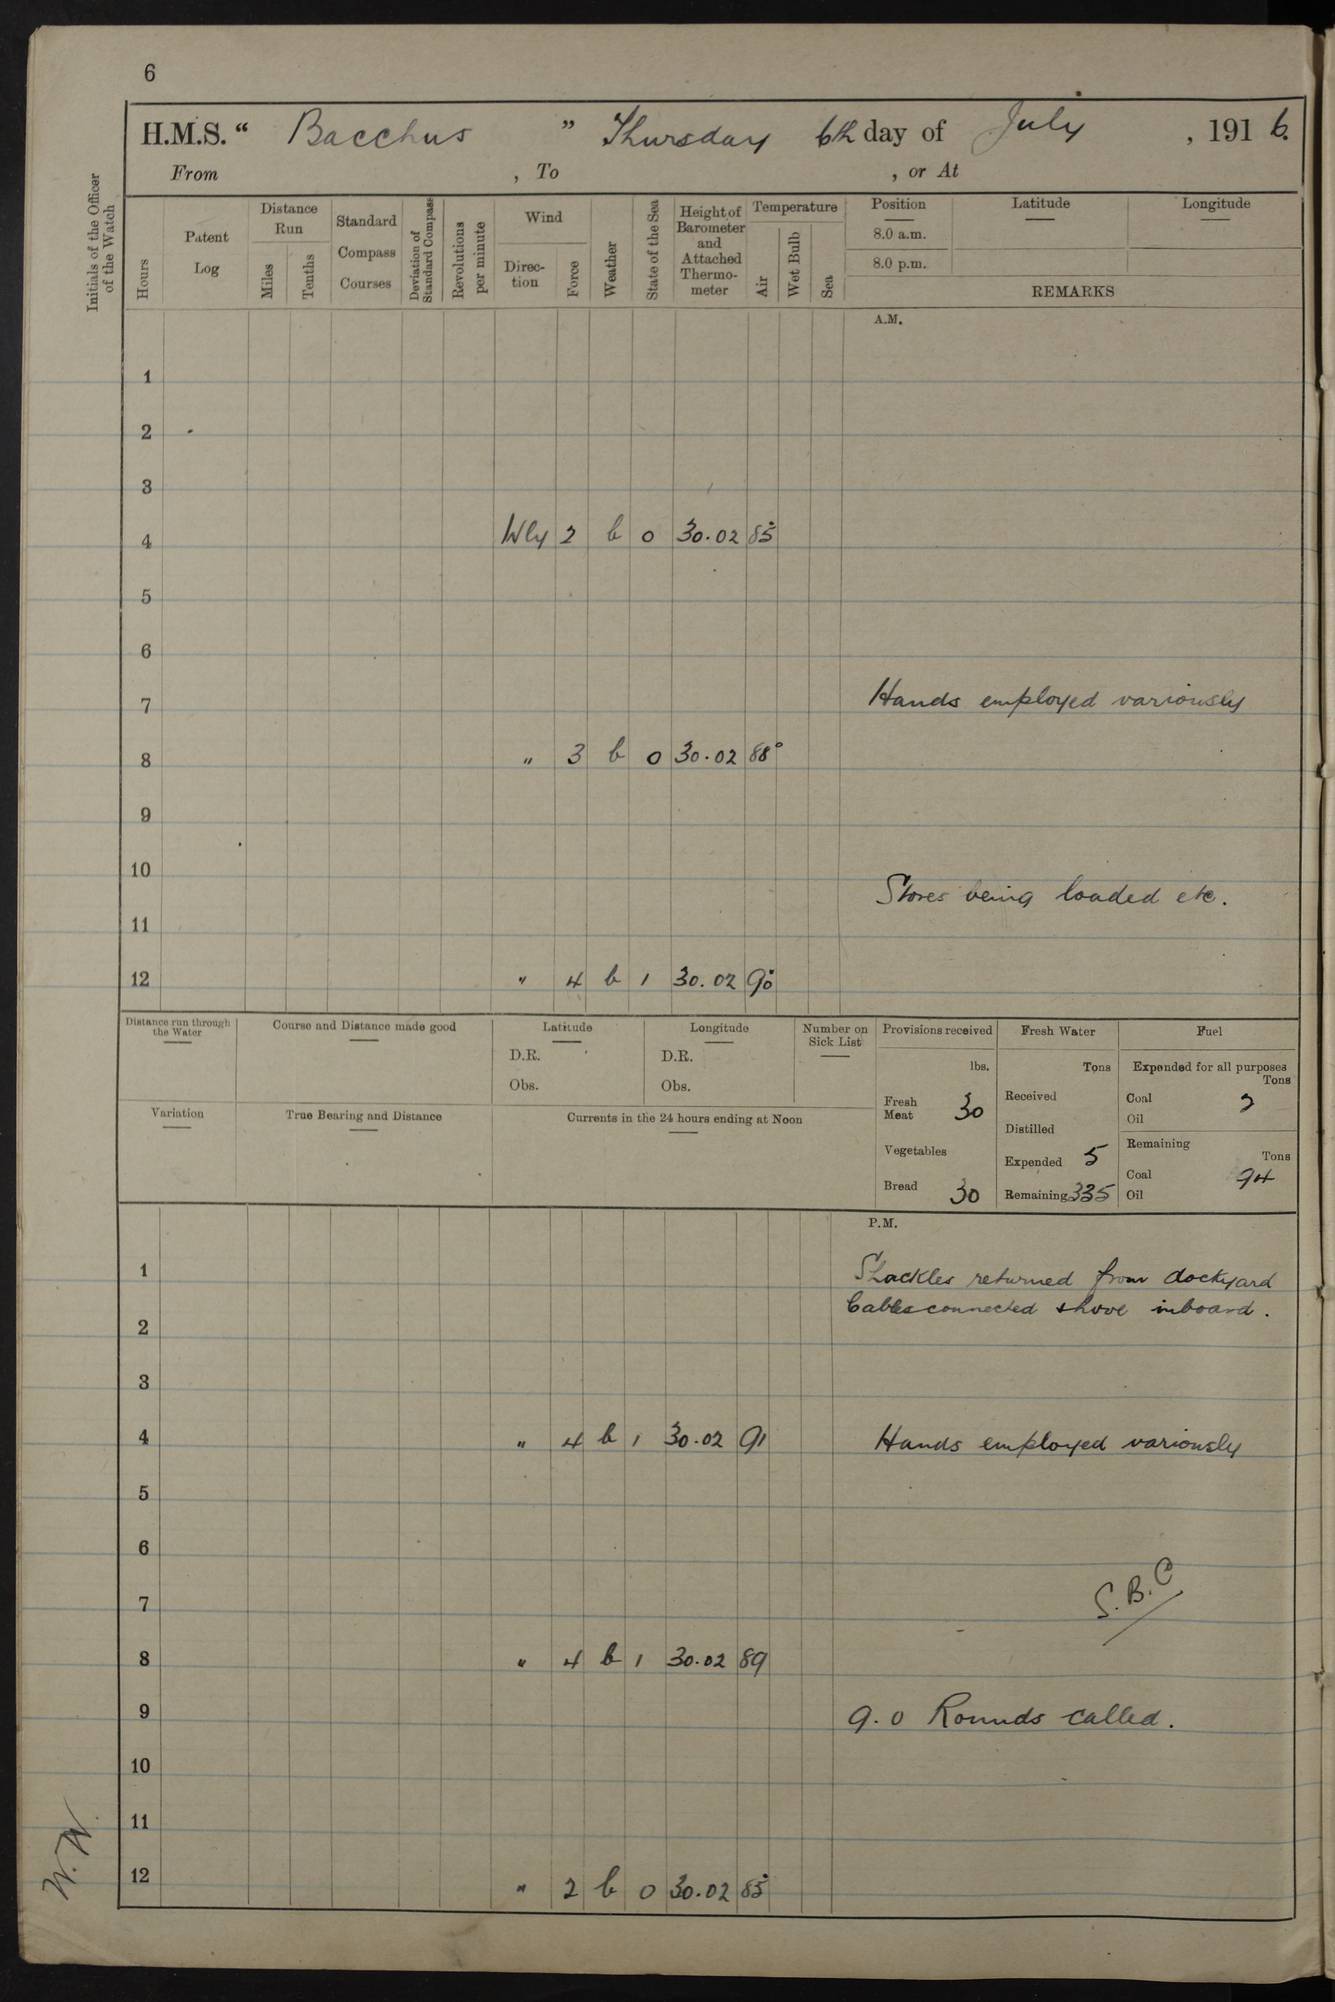 6
H.M.S. “ Bacchus ” Thursday 6th day of July , 1916.
From , To , or At
Initials of the Officer of the Watch
Hours
Patent Log
Distance Run
Miles
Tenths
Standard Compass Courses
Deviation of Standard Compass
Revolutions per minute
Wind
Direction
Force
Weather
State of the Sea
Height of Barometer and Attached Thermometer
Temperature
Air
Wet Bulb
Sea
Position Latitude Longitude
8.0 a.m.
8.0 p.m.
REMARKS
A.M.
1
2
3
4 Wly 2 b 0 30.02 85°
5
6
7 Hands employed variously
8 " 3 b 0 30.02 88°
9
10
Stores being loaded etc.
11
12 " 4 b 1 30.02 90°
Distance run through the Water
Course and Distance made good
Latitude
D.R.
Obs.
Longitude
D.R.
Obs.
Number on Sick List
Provisions received
lbs.
Fresh Meat 30
Vegetables
Bread 30
Fresh Water
Tons
Received
Distilled
Expended 5
Remaining 335
Fuel
Expended for all purposes
Tons
Coal 2
Oil
Remaining
Tons
Coal 94
Oil
Variation
True Bearing and Distance
Currents in the 24 hours ending at Noon
P.M.
1 Shackles returned from dockyard
Cables connected & hove inboard.
2
3
4 " 4 b 1 30.02 91 Hands employed variously
5
6
S.B.C
7
8 " 4 b 1 30.02 89
9 9.0 Rounds called.
10
11
12 " 2 b 0 30.02 85°
W.W.